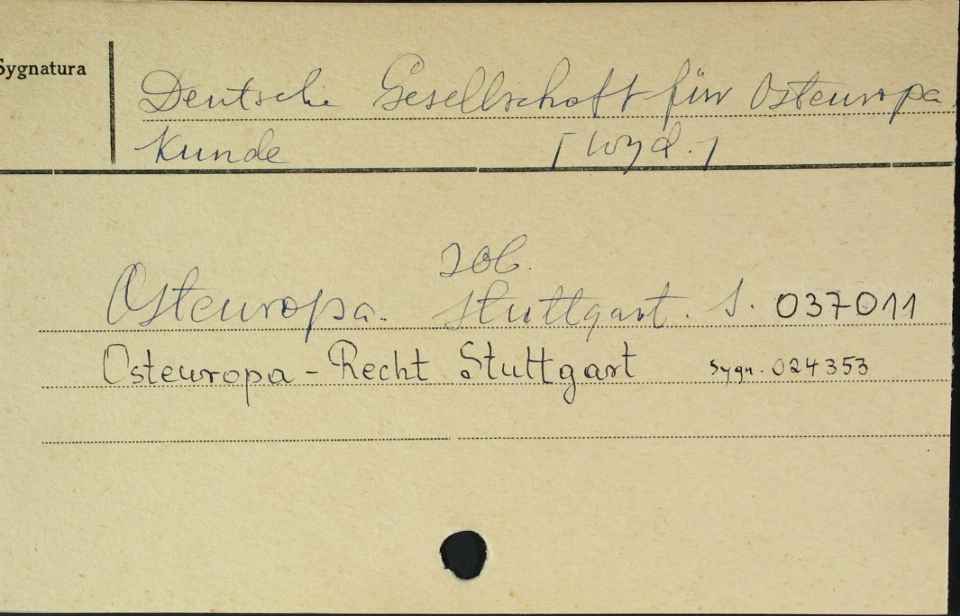 Sygnatura
Deutsche Gesellschaft für Osteuropa
Kunde [wyd.]
zob.
Osteuropa. Stuttgart. S. 037011
Osteuropa-Recht Stuttgart Sygn. 024353